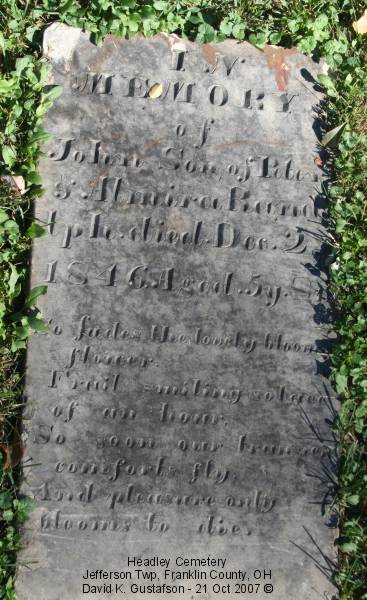 IN
MEMORY
of
John Son of Peter
& Almira Rand
died Dec. 2
1846 Aged 5y. 8
So fades the lovely bloom
flower.
Frail smiling solace
of an hour.
So soon our transien
comforts fly.
And pleasure only
blooms to die.
Headley Cemetery
Jefferson Twp, Franklin County, OH
David K. Gustafson - 21 Oct 2007 ©